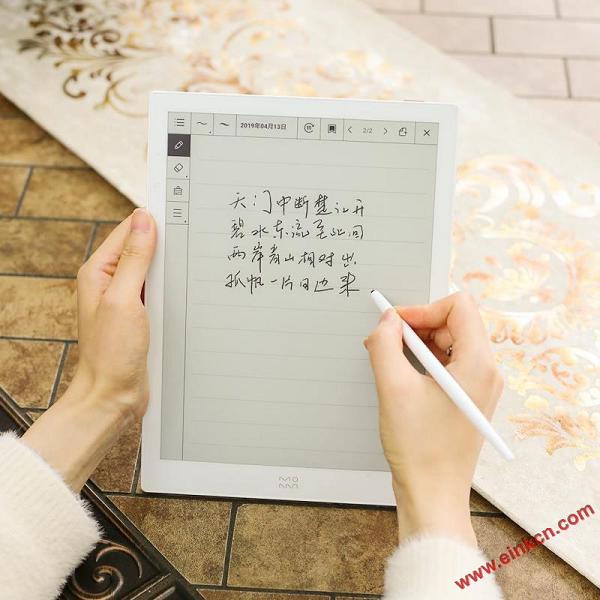 2019年04月13日
2/2
天门中断楚江开
碧水东流至此回
两岸青山相对出
孤帆一片日边来
MO
AAN
www.einkcn.com